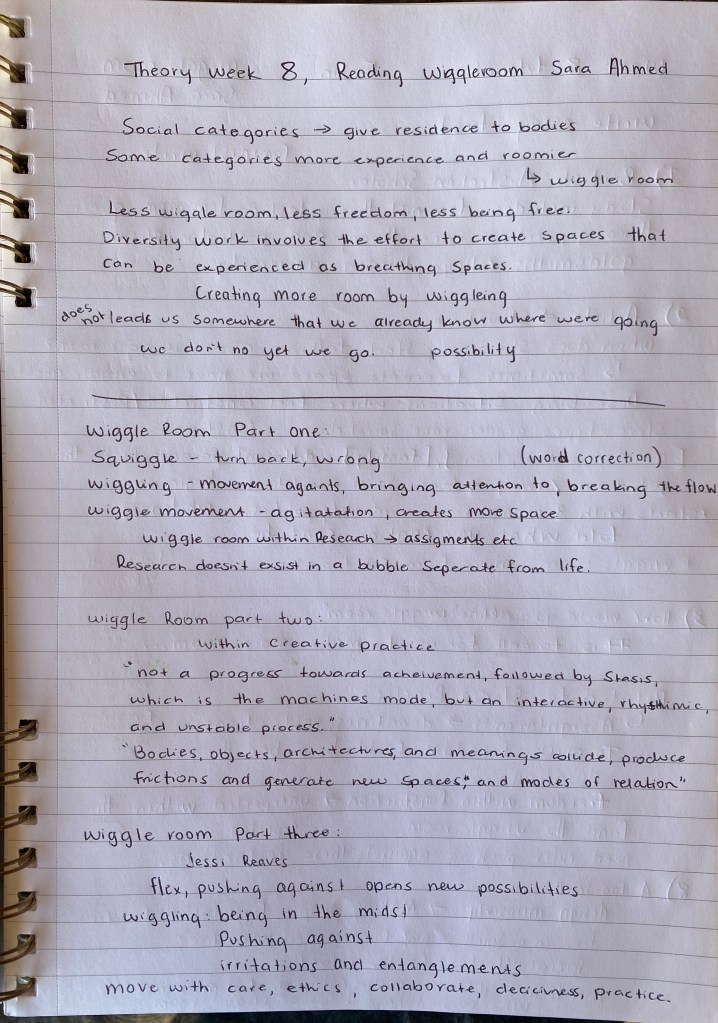 Theory Week 8, Reading Wiggleroom Sara Ahmed
Social categories → give residence to bodies
Some categories more experience and roomier
↳ wiggle room
Less wiggle room, less freedom, less being free.
Diversity work involves the effort to create spaces that
can be experienced as breathing spaces.
Creating more room by wiggleing
does not leads us somewhere that we already know where were going
we don't no yet we go. possibility
Wiggle Room Part one:
Squiggle - turn back, wrong (word correction)
wiggling - movement againts, bringing attention to, breaking the flow
wiggle movement - agitatation, creates more space
wiggle room within Reseach → assigments etc
Research doesn't exsist in a bubble seperate from life.
wiggle Room part two:
within creative practice
"not a progress towards acheivement, followed by Stasis,
which is the machines mode, but an interactive, rhythimic,
and unstable process."
"Bodies, objects, architectures, and meanings collide, produce
frictions and generate new spaces, and modes of relation"
wiggle room Part three:
Jessi Reaves
flex, pushing against opens new possibilities
wiggling: being in the midst
Pushing against
irritations and entanglements
move with care, ethics, collaborate, decicivness, practice.